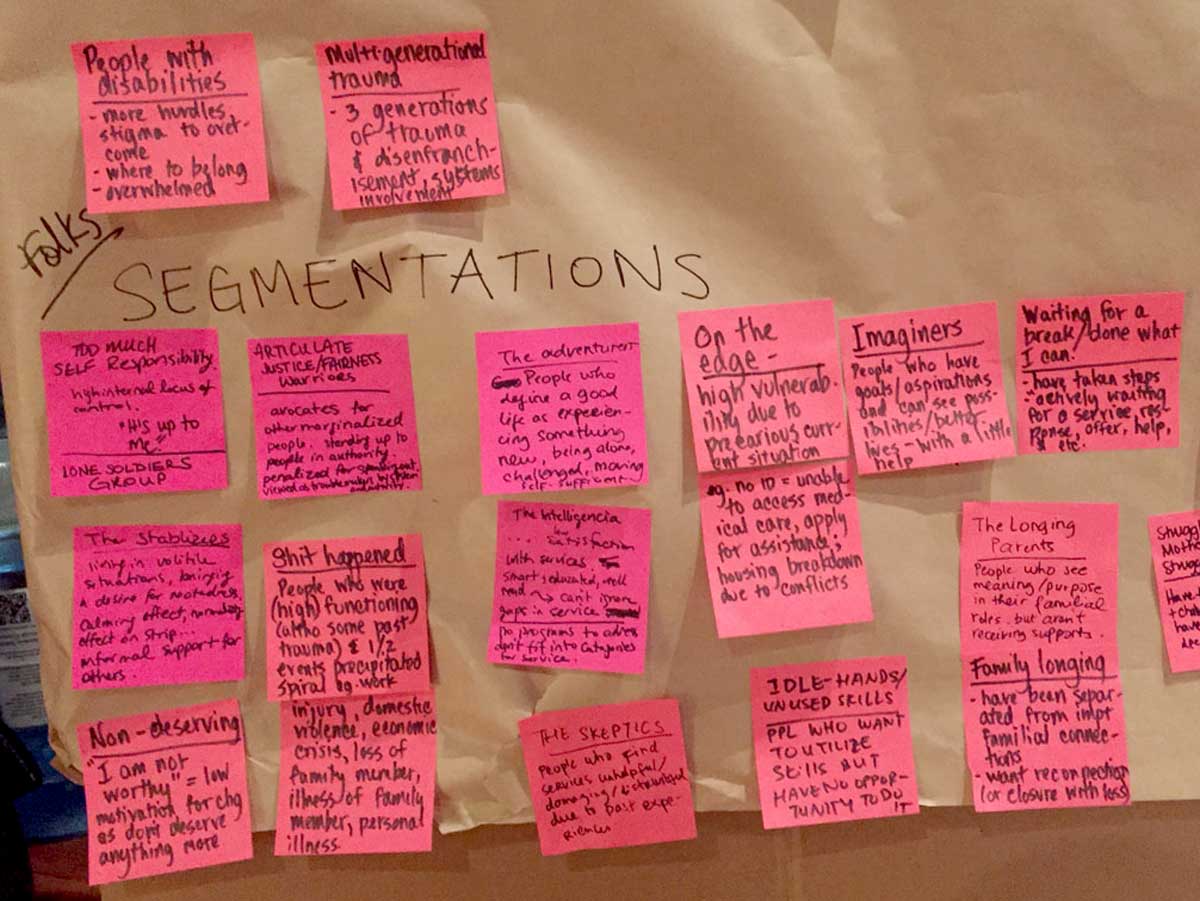 People with
disabilities
- more hurdles,
stigma to over-
come
- where to belong
- overwhelmed
Multi-generational
trauma
- 3 generations
of trauma
& disenfranch-
isement, systems
involvement
Folks/
SEGMENTATIONS
TOO MUCH
SELF Responsibility.
high internal locus of
control.
"It's up to
me."
LONE SOLDIERS
GROUP
ARTICULATE
JUSTICE/FAIRNESS
Warriors
avocates for
other marginalized
people. standing up to
people in authority.
penalized for speaking out.
viewed as troublemakers by
authority.
The adventurer
People who
define a good
life as experien-
cing something
new, being alone,
challenged, moving
self-sufficient
On the
edge -
high vulnerab-
ility due to
precarious curr-
ent situation
eg. no ID = unable
to access med-
ical care, apply
for assistance;
housing breakdown
due to conflicts
Imaginers
People who have
goals/aspirations
and can see poss-
ibilities/better
lives - with a little
help
Waiting for a
break/done what
I can.
- have taken steps
- "actively waiting
for a service, res-
ponse, offer, help,
& etc.
The Stablizers
living in volitile
situations, bringing
a desire for
Calming effect,
effect on strip...
informal support for
others.
Shit happened
People who were
(high) functioning
(altho some past
trauma) & 1/2
events precipitated
spiral eg. work
injury, domestic
violence, economic
crisis, loss of
family member,
illness of family
member, personal
illness.
The Intelligencia
... low satisfaction
with services
smart, educated, well
read → can't ignore
gaps in service
no programs to adress
don't fit into categories
for service.
The Longing
Parents
People who see
meaning/purpose
in their familial
roles. but arent
receiving supports.
Family longing
- have been separ-
ated from impt
familial connec-
tions
- want reconnection
(or closure with loss)
Strugg
Moth
Strugg
Have
+ ch
have
Non-deserving
"I am not
worthy" = low
motivation for chg
as don't deserve
anything more
THE SKEPTICS
People who find
services unhelpful/
damaging/
due to past expe-
riences
IDLE-HANDS/
UNUSED SKILLS
PPL WHO WANT
TO UTILIZE
SKILLS BUT
HAVE NO OPPOR-
TUNITY TO DO
IT